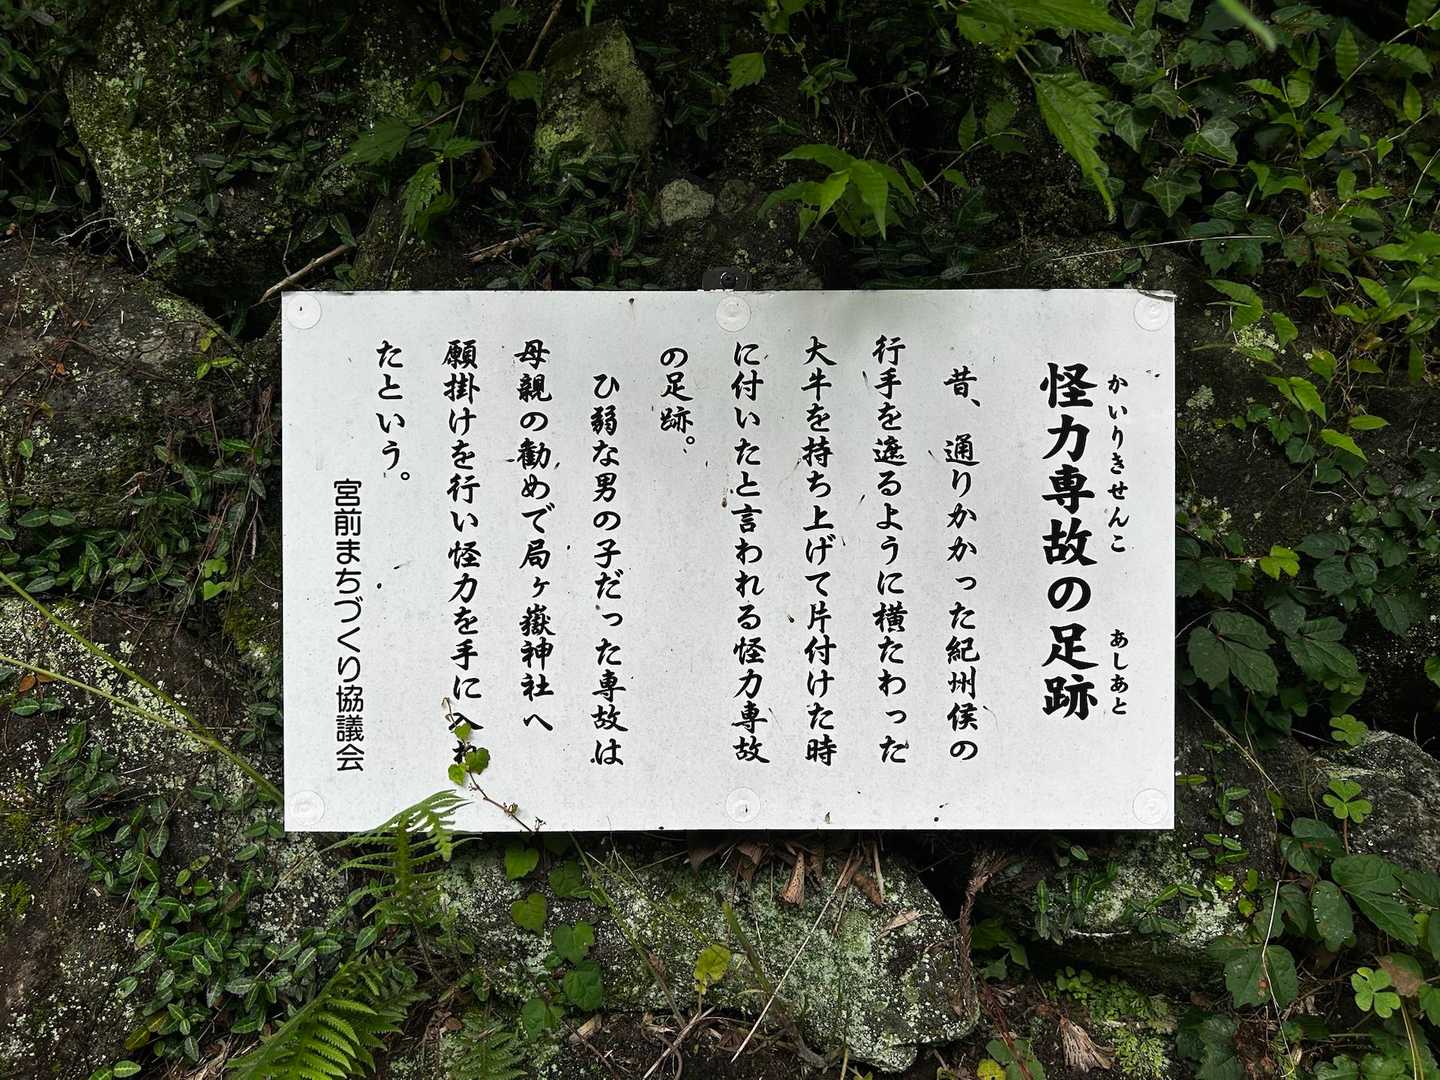 かいりきせんこ あしあと
怪力専故の足跡
昔、通りかかった紀州侯の
行手を遮るように横たわった
大牛を持ち上げて片付けた時
に付いたと言われる怪力専故
の足跡。
ひ弱な男の子だった専故は
母親の勧めで局ヶ嶽神社へ
願掛けを行い怪力を手に入れ
たという。
宮前まちづくり協議会